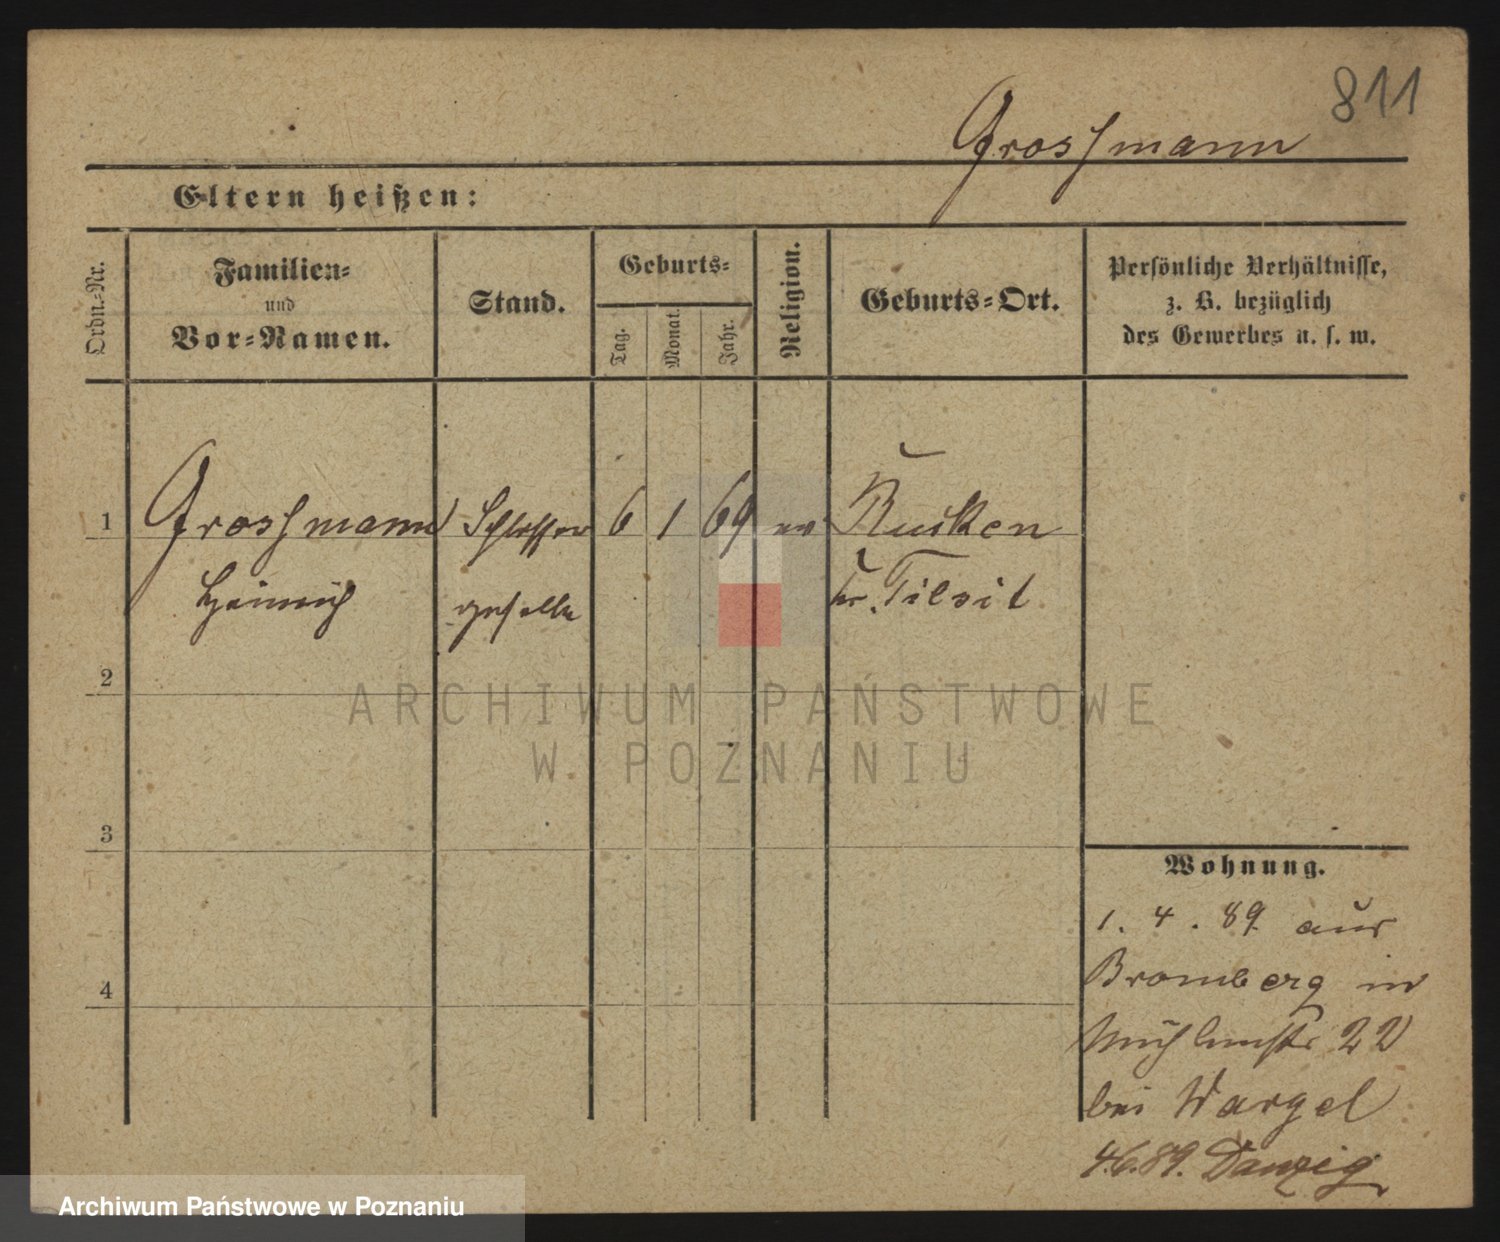 811
Grossmann
Eltern heißen:
Ordn.-Nr.
Familien-
und
Vor-Namen.
Stand.
Geburts-
Tag.
Monat.
Jahr.
Religion.
Geburts-Ort.
Persönliche Verhältnisse,
z. B. bezüglich
des Gewerbes u. s. w.
1 Grossmann Schlosser 6 1 69 ev
Heinrich geselle Kr. Tilsit
2
3
4
ARCHIWUM PAŃSTWOWE
W POZNANIU
Wohnung.
1. 4. 89. aus
Bromberg in
Mühlenstr 22
bei Wargel
4.6.89. Danzig
Archiwum Państwowe w Poznaniu